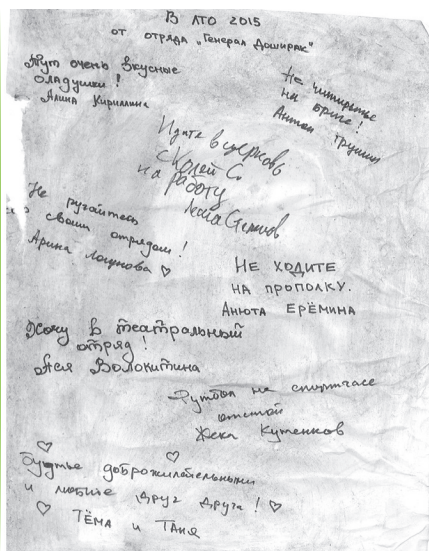 В ЛТО 2015
от отряда „Генерал Доширак"
Тут очень вкусные
оладушки!
Алина Кириллина
Не
на бриге!
Антон Трушин
Идите в церковь
с Колей С.
на работу
Не ругайтесь
со своим отрядом!
Арина
Не ходите
на прополку.
Анюта Ерёмина
Хочу в театральный
отряд!
Ася Волокитина
Футбол на спортчасе
отстой
Жека Кутенков
будтье доброжилательными
и любите друг друга!
Тёма и Таня